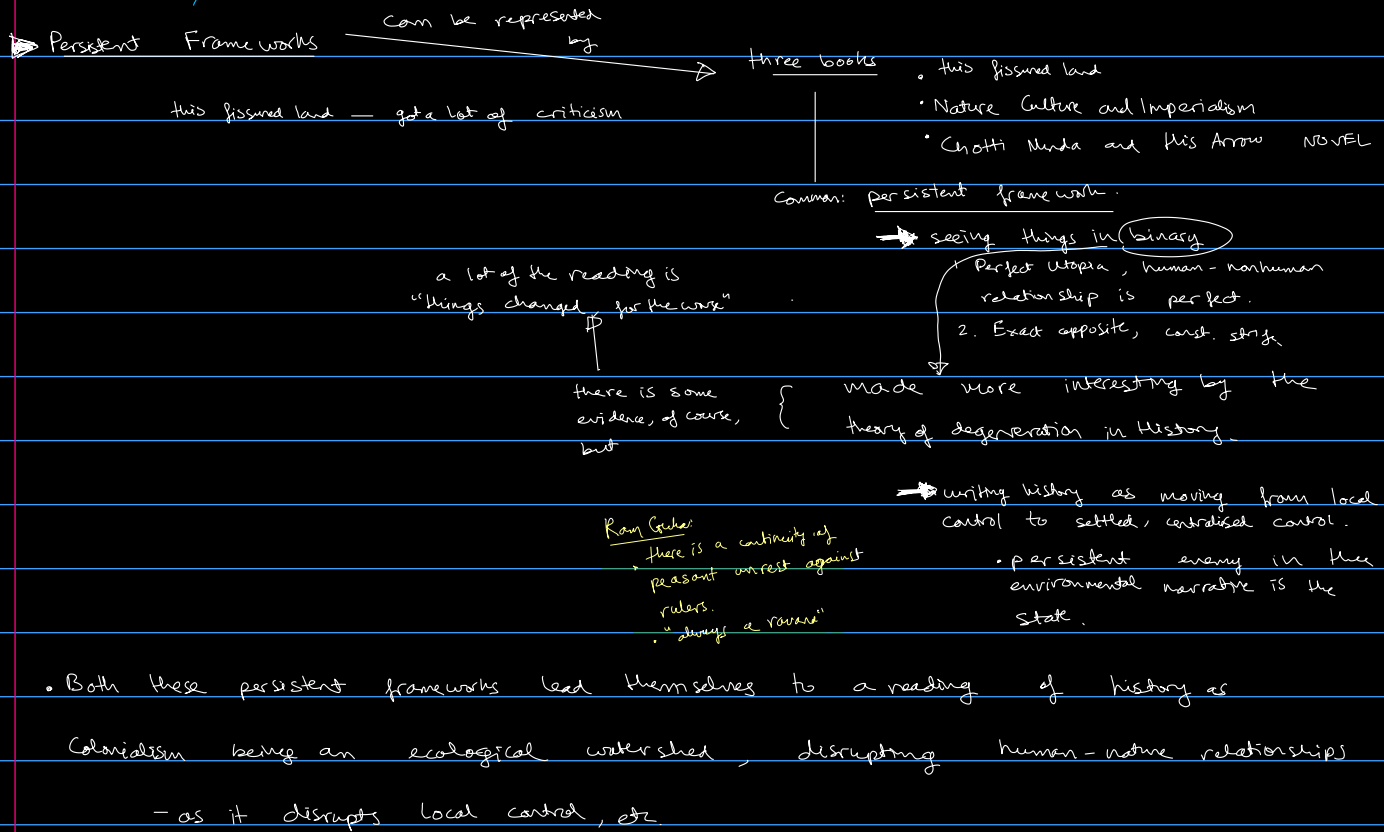 Persistent Frameworks
can be represented
by
three books
• this fissured land
• Nature Culture and Imperialism
• Chotti Munda and His Arrow NOVEL
this fissured land — got a lot of criticism
Common: persistent framework.
seeing things in binary
1 Perfect Utopia, human-nonhuman
relationship is perfect.
2. Exact opposite, const. strife
a lot of the reading is
"things changed for the worse"
there is some
evidence, of course,
but
made more interesting by the
theory of degeneration in History.
writing history as moving from local
control to settled, centralised control.
• persistent enemy in the
environmental narrative is the
state.
Ram Guha:
• there is a continuity of
peasant unrest against
rulers.
• "always a ravana"
• Both these persistent frameworks lead themselves to a reading of history as
Colonialism being an ecological watershed, disrupting human-nature relationships
– as it disrupts local control, etc.